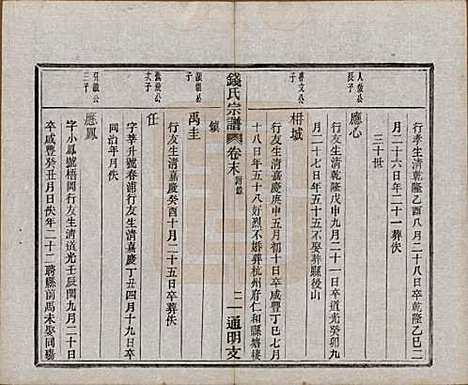 行孝生清乾隆乙酉八月二十八日卒乾隆乙巳二
月二十六日年二十一葬佚
三十世
人
長子
應心
行友生清乾隆戊申九月二十一日卒道光癸卯九
月二十七日年五十五不娶葬縣後山
文公
子
栟城
行友生清嘉慶庚申五月初十日卒咸豐丁巳七月
十八日年五十八好烈不婚葬杭州府仁和縣塘棲
鎮
錢氏宗譜 卷末
二
通明支
子
禹圭
行友生清嘉慶癸酉十月二十五日卒葬佚
次子
任
字莘升號春浦行友生清嘉慶丁丑四月十九日卒
同治年月佚
三子
應鳳
字小鳳號梧岡行友生清道光壬辰閏九月二十日
卒咸豐癸丑月日佚年二十二聘縣南馬未娶同嘉